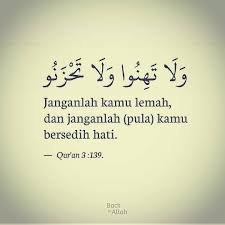 وَلَا تَهِنُوا وَلَا تَحْزَنُو
Janganlah kamu lemah,
dan janganlah (pula) kamu
bersedih hati.
— Qur'an 3 :139.
Back
to Allah